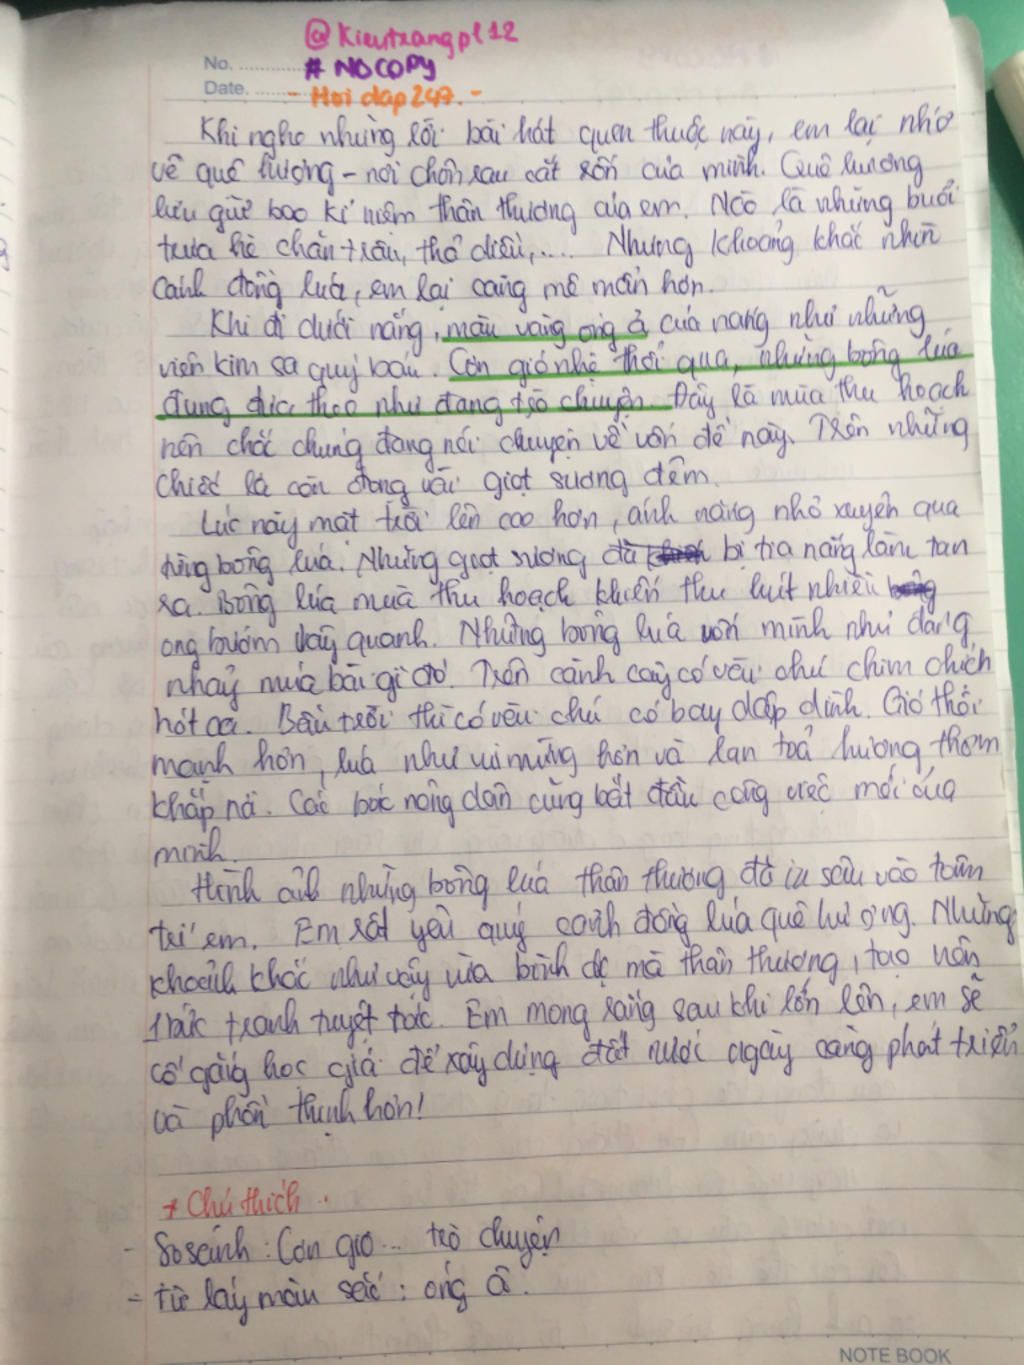 @Kieutrangpl12
No. ............ #NOCOPY
Date. ........ - Hoi dap247. -
Khi nghe những lời bài hát quen thuộc này, em lại nhớ
về quê hương - nơi chôn rau cắt rốn của mình. Quê hương
lưu giữ bao kỉ niệm thân thương của em. Nào là những buổi
trưa hè chăn trâu, thả diều,.... Nhưng khoảng khắc nhìn
cánh đồng lúa, em lại càng mê mẩn hơn.
Khi đi dưới nắng, màu vàng óng ả của nắng như những
viên kim sa quý báu. Cơn gió nhẹ thổi qua, những bông lúa
đung đưa theo như đang trò chuyện. Đây là mùa thu hoạch
nên chắc chúng đang nói chuyện về vấn đề này. Trên những
chiếc lá còn đọng vài giọt sương đêm.
Lúc này mặt trời lên cao hơn, ánh nắng nhỏ xuyên qua
từng bông lúa. Những giọt sương đã bị tia nắng làm tan
ra. Bông lúa mùa thu hoạch khiến thu hút nhiều
ong bướm vây quanh. Những bông lúa uốn mình như đang
nhảy múa bài gì đó. Trên cành cây có vài chú chim chích
hót ca. Bầu trời thì có vài chú cò bay dập dình. Gió thổi
mạnh hơn, lúa như vui mừng hơn và lan toả hương thơm
khắp nơi. Các bác nông dân cũng bắt đầu công việc mới của
mình.
Hình ảnh những bông lúa thân thương đã in sâu vào tâm
trí em. Em rất yêu quý cánh đồng lúa quê hương. Những
khoảnh khắc như vậy vừa bình dị mà thân thương, tạo nên
1 bức tranh tuyệt tác. Em mong rằng sau khi lớn lên, em sẽ
cố gắng học giỏi để xây dựng đất nước ngày càng phát triển
và phồn thịnh hơn!
* Chú thích.
- So sánh: Cơn gió... trò chuyện
- từ láy màu sắc: óng ả.
NOTE BOOK